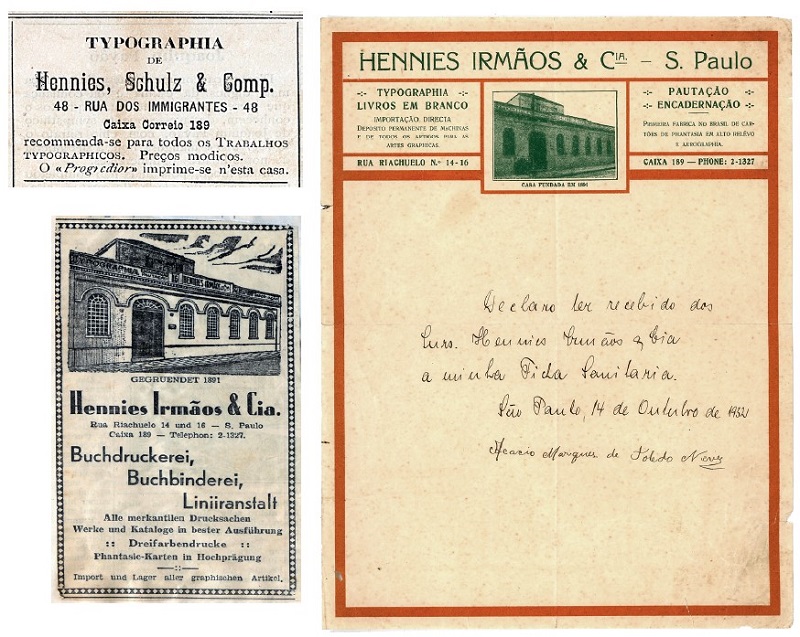 TYPOGRAPHIA
DE
Hennies, Schulz & Comp.
48 - RUA DOS IMMIGRANTES - 48
Caixa Correio 189
recommenda-se para todos os TRABALHOS
TYPOGRAPHICOS. Preços modicos.
O «Progredior» imprime-se n'esta casa.
TYPOGRAPHIA
HENNIES IRMÃOS
GEGRUENDET 1891
Hennies Irmãos & Cia.
Rua Riachuelo 14 und 16 — S. Paulo
Caixa 189 — Telephon: 2-1327.
Buchdruckerei,
Buchbinderei,
Liniiranstalt
Alle merkantilen Drucksachen
Werke und Kataloge in bester Ausführung
:: Dreifarbendrucke ::
Phantasie-Karten in Hochprägung
Import und Lager aller graphischen Artikel.
HENNIES IRMÃOS & CIA. – S. Paulo
TYPOGRAPHIA
LIVROS EM BRANCO
IMPORTAÇÃO DIRECTA
DEPOSITO PERMANENTE DE MACHINAS
E DE TODOS OS ARTIGOS PARA AS
ARTES GRAPHICAS.
RUA RIACHUELO N.os 14-16
CASA FUNDADA EM 1891
PAUTAÇÃO
ENCADERNAÇÃO
PRIMEIRA FABRICA NO BRASIL DE CAR-
TÕES DE PHANTASIA EM ALTO RELÊVO
E AEROGRAPHIA.
CAIXA 189 — PHONE: 2-1327
Declaro ter recebido dos
Snrs. Hennies Irmãos & Cia
a minha Ficha Sanitaria.
São Paulo, 14 de Outubro de 1932
Acacio Marques de Toledo Neves